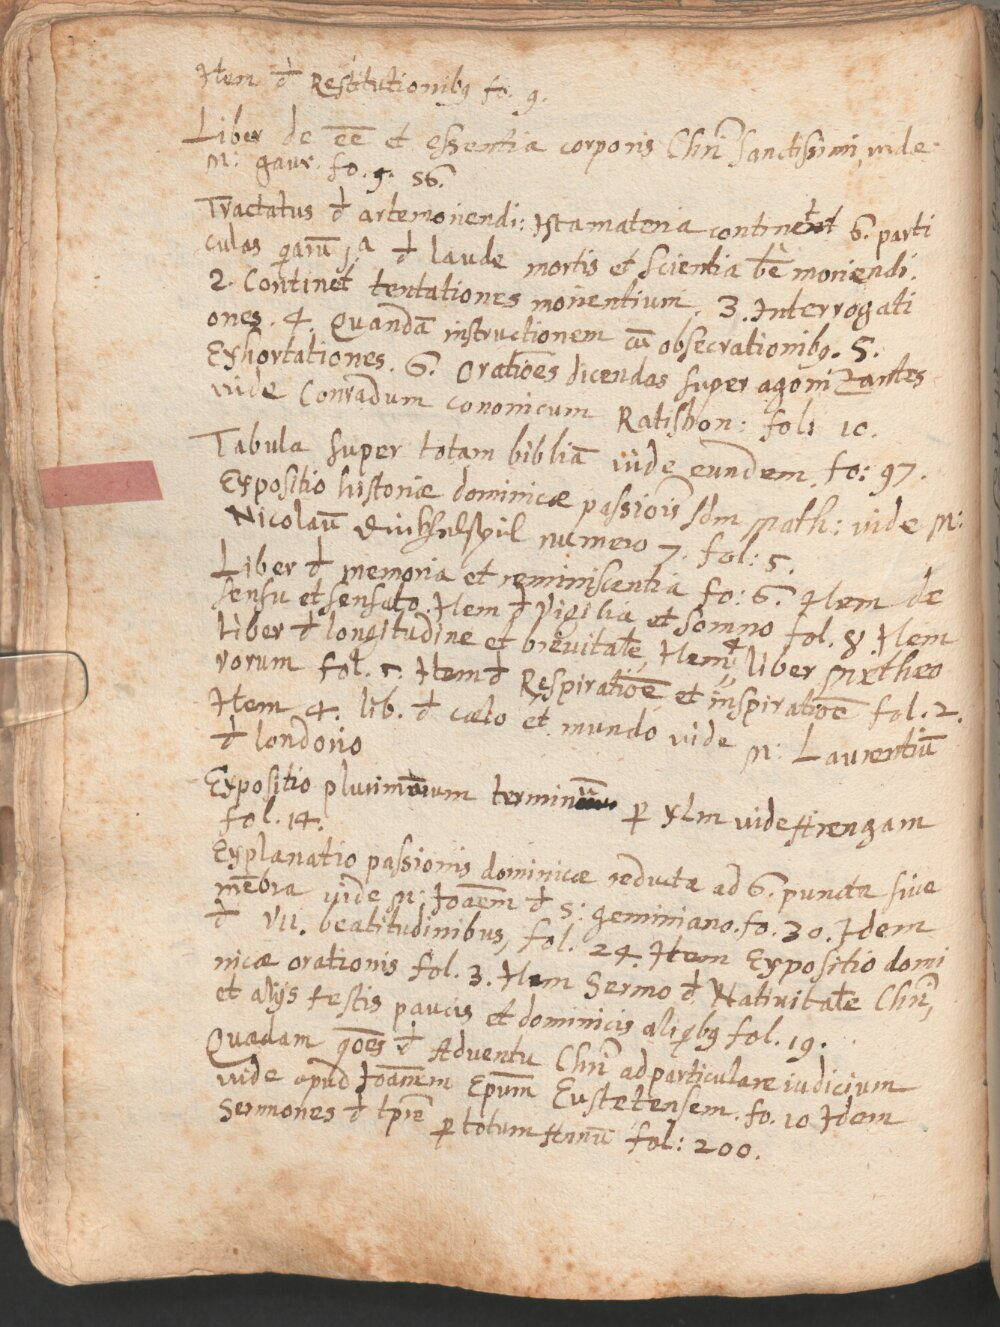 Item đ Restitutionibꝰ fo. 9.
Liber de eē et essentia corporis Chrī sanctissimi, vide
M: gaur. fo. 9. 56.
Tractatus đ arte moriendi: Ista materia continet 6. parti
culas quarū 1.a đ laude mortis et scientia bē moriendi.
2. Continet tentationes morientium. 3. Interrogati
ones. 4. Quandā instructionem cū obsecrationibꝰ. 5.
Exhortationes. 6. Oratiōes dicendas super agonizantes
vide Conradum cononicum Ratisbon: fol: 10.
Tabula super totam bibliā vide eundem. fo: 97.
Expositio historiæ dominicæ passiois sdm Math: vide M:
Nicolaū numero 7. fol: 5.
Liber đ memoria et reminiscentia fo: 6. Item de
sensu et sensato. Item đ Vigilia et Somno fol. 8. Item
liber đ longitudine et brevitate, Item liber
vorum fol. 5. Item đ Respiratiōe et inspiratiōe fol. 2.
Item 4. lib. đ cælo et mundo vide M: Laurentiū
đ londorio
Expositio plurimorum terminū ꝑ ylm vide Arengam
fol. 14.
Explanatio passionis dominicæ reducta ad 6. puncta sive
mēbra vide M: Joāem đ S: geminiano. fo. 30. Idem
đ VII. beatitudinibus, fol. 24. Item Expositio domi
nicæ orationis fol. 3. Item Sermo đ Nativitate Chrī,
et alijs festis paucis et dominicis aliqbꝰ fol. 19.
Quædam qōes đ Adventu Chrī ad particulare iudicium
vide apud Joānem Epūm Eustetensem. fo. 10 Idem
Sermones đ tpre ꝑ totum Annū fol: 200.